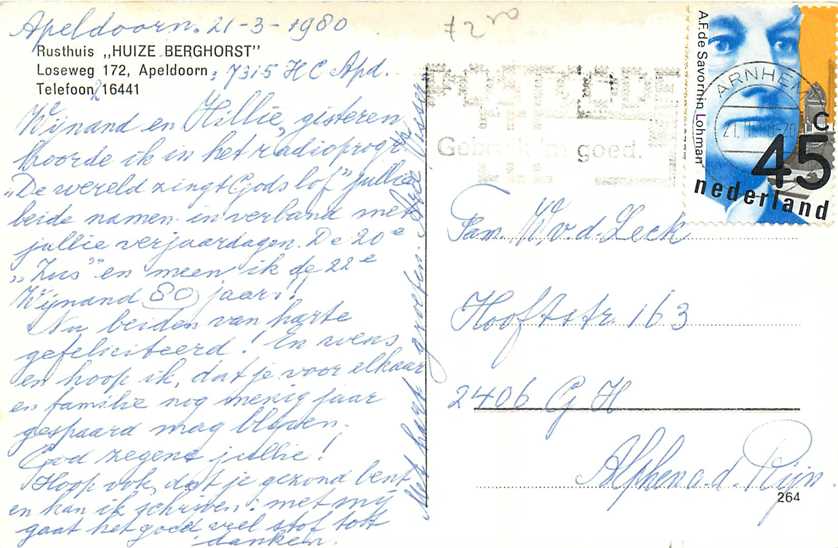 Apeldoorn. 21-3-1980
Rusthuis „HUIZE BERGHORST"
Loseweg 172, Apeldoorn, 7315 HC Apd.
Telefoon 16441
Wijnand en Hillie, gisteren
hoorde ik in het radioprogr.
„De wereld zingt Gods lof" jullie
beide namen in verband met
jullie verjaardagen. De 20e
„Zus" en meen ik de 22e
Wijnand 80 jaar!!
Nu beiden van harte
gefeliciteerd! En wens
en hoop ik, dat je voor elkaar
en familie nog menig jaar
gespaard mag blijven.
God zegene jullie!
Hoop ook, dat je gezond bent
en kan ik schrijven: met mij
gaat het goed, veel stof tot
danken.
Met hart. groeten.
f 2,50
Goed.
ARNHEM
A.F. de Savornin Lohman
45 c
nederland
Fam. W. v. d. Leck
Hooftstr. 163
2406 GH
Alphen a. d. Rijn.
264